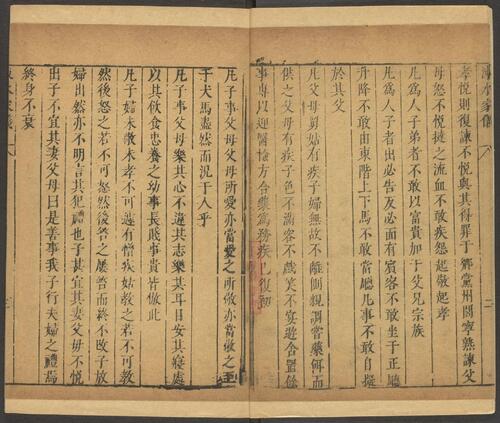 涑水家儀 八 二
孝悅則復諫不悅與其得罪于鄉黨州閭寧熟諫父
母怒不悅撻之流血不敢疾怨起敬起孝
凡為人子弟者不敢以富貴加于父兄宗族
凡為人子者出必告反必面有賓客不敢坐于正廳
升降不敢由東階上下馬不敢當廳凡事不敢自擬
於其父
凡父母舅姑有疾子婦無故不離側親調嘗藥餌而
供之父母有疾子色不滿容不戲笑不宴遊舍置餘
事專以迎醫檢方合藥爲務疾已復初
凡子事父母父母所愛亦當愛之所敬亦當敬之至
于犬馬盡然而況于人乎
凡子事父母樂其心不違其志樂其耳目安其寢處
以其飲食忠養之幼事長賤事貴皆倣此
凡子婦未敬未孝不可遽有憎疾姑教之若不可教
然後怒之若不可怒然後笞之屢笞而終不改子放
婦出然亦不明言其犯禮也子甚宜其妻父母不悅
出子不宜其妻父母曰是善事我子行夫婦之禮焉
終身不衰
涑水家儀 八 三